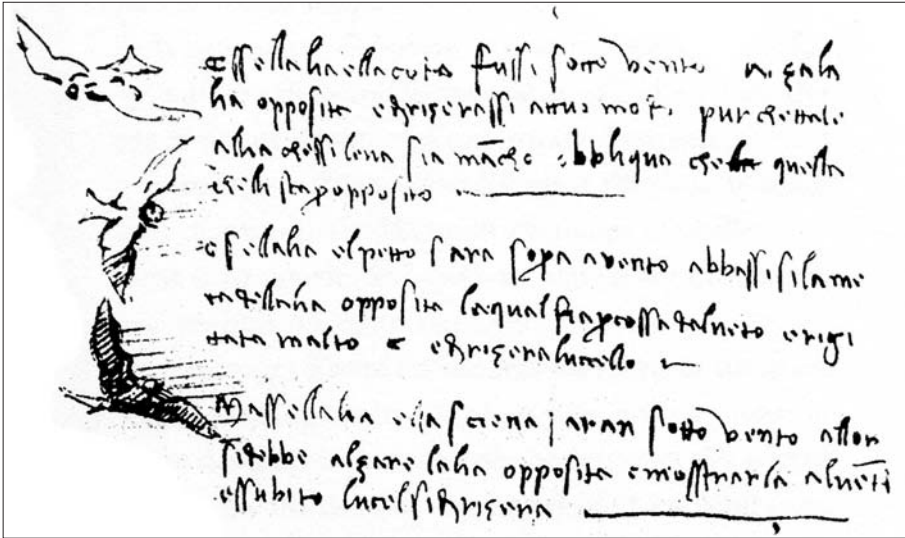 Essellalia ella coda fussi socto vento alza la
lia opposita edirizerassi attuo mod. purchettale
allia chessileva sia māco obbliqua che quella
chelli sta p opposito
Essellalia elpetto sara sopa avento abbassisi lame
ta dellalia opposita laqual fia pcossa dalvēto e rigi
ttata in alto e dirizera lucello
Massellalia ella sciena saran socto vento allor
sidebbe alzare lalia opposita e mosstrarla alvēto
essubito lucel si dirizera